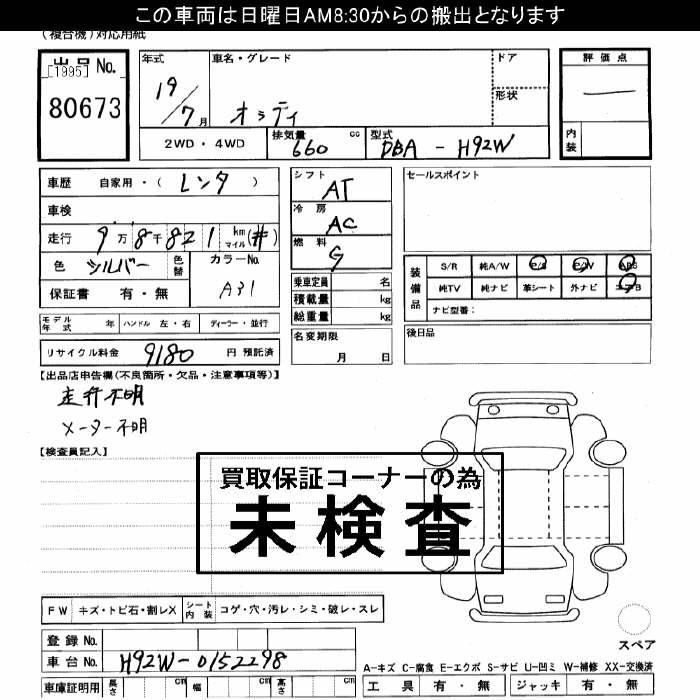 この車両は日曜日AM8:30からの搬出となります
(複合機)対応用紙
出品 No.
[1995]
80673
年式
19/7月
車名・グレード
オッティ
ドア
形状
評価点
内装
2WD・4WD
排気量 660 cc
型式 DBA-H92W
車歴 自家用・(レンタ)
車検
走行 9万8千821 km マイル (#)
色 シルバー 色替
カラーNo. A31
保証書 有・無
シフト AT
冷房 AC
燃料 G
乗車定員 名
積載量 kg
総重量 kg
セールスポイント
装備品
S/R 純A/W P/S P/W ABS
純TV 純ナビ 革シート 外ナビ エアB
ナビ型番:
モデル年式 年 ハンドル 左・右 ディーラー・並行
名変期限
月 日
後日品
リサイクル料金 9180 円 預託済
【出品店申告欄(不良箇所・欠品・注意事項等)】
走行不明
メーター不明
【検査員記入】
買取保証コーナーの為
未検査
FW キズ・トビ石・割レX シート内装 コゲ・穴・汚レ・シミ・破レ・スレ
登録No.
車台No. H92W-0152298
スペア
A-キズ C-腐食 E-エクボ S-サビ U-凹ミ W-補修 XX-交換済
車庫証明用 長さ cm 幅 cm 高さ cm
工具 有・無 ジャッキ 有・無